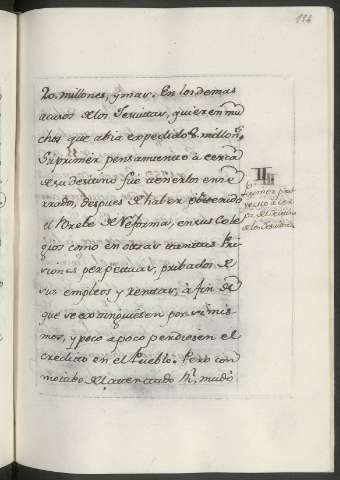 114
20. millones, y mas. En los demas
acasos de los Jesuitas, quieren mu
chos que abia expedido 8. millon.s
Su primer pensamiento à cerca
de su destino fué tenerlos ence
rrados despues de haber obtenido
el Brebe de Reforma, en sus Cole
gios como en otras tantas Pri
siones perpetuas, pribados de
sus empleos y rentas, à fin de
que se extinguiesen por si mis
mos, y poco a poco perdiesen el
credito en el Pueblo. Pero con
motibo del atentado R.l mudó
III
primer proy
yecto à cer
ca del destino
de los Jesuitas